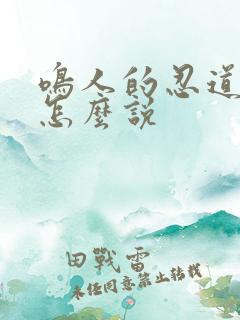 鳴人的忍道
怎麼說
田戰雷
未經同意禁止轉載